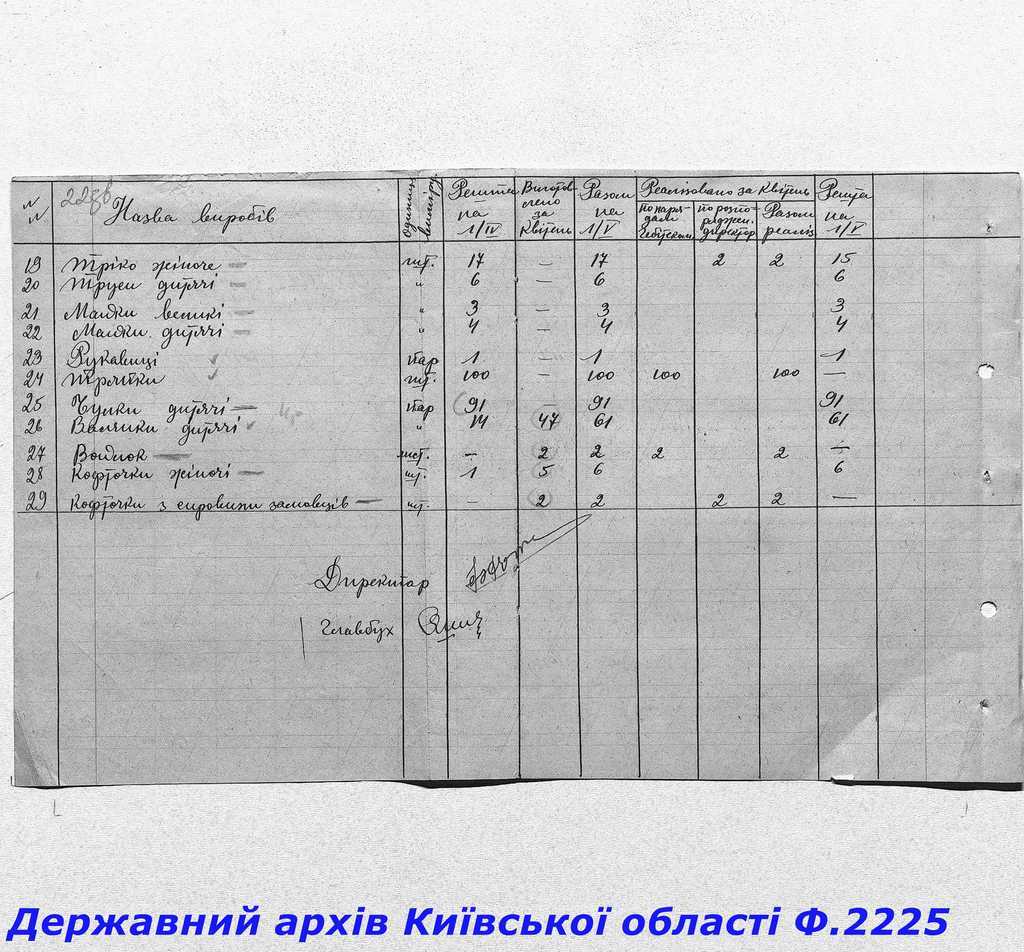 228в
№ № Назва виробів Одиниц. виміру. Решта на 1/IV Виготовлено за Квітень Разом на 1/V Реалізовано за Квітень Решта на 1/V
по наря- дам по розпо- ряджен. директор Разом реаліз
19 Тріко жіноче — шт. 17 — 17 2 2 15
20 Труси дитячі — " 6 — 6 6
21 Майки великі — " 3 — 3 3
22 Майки дитячі — " 4 — 4 4
23 Рукавиці пар 1 — 1 1
24 Тряпки шт. 100 — 100 100 100 —
25 Чулки дитячі — пар 91 91 91
26 Валянки дитячі " 14 47 61 61
27 Войлок — лист. — 2 2 2 2 —
28 Кофточки жіночі — шт. 1 5 6 6
29 Кофточки з сировини замовців — шт. — 2 2 2 2 —
Директор
Главбух
Державний архів Київської області Ф.2225